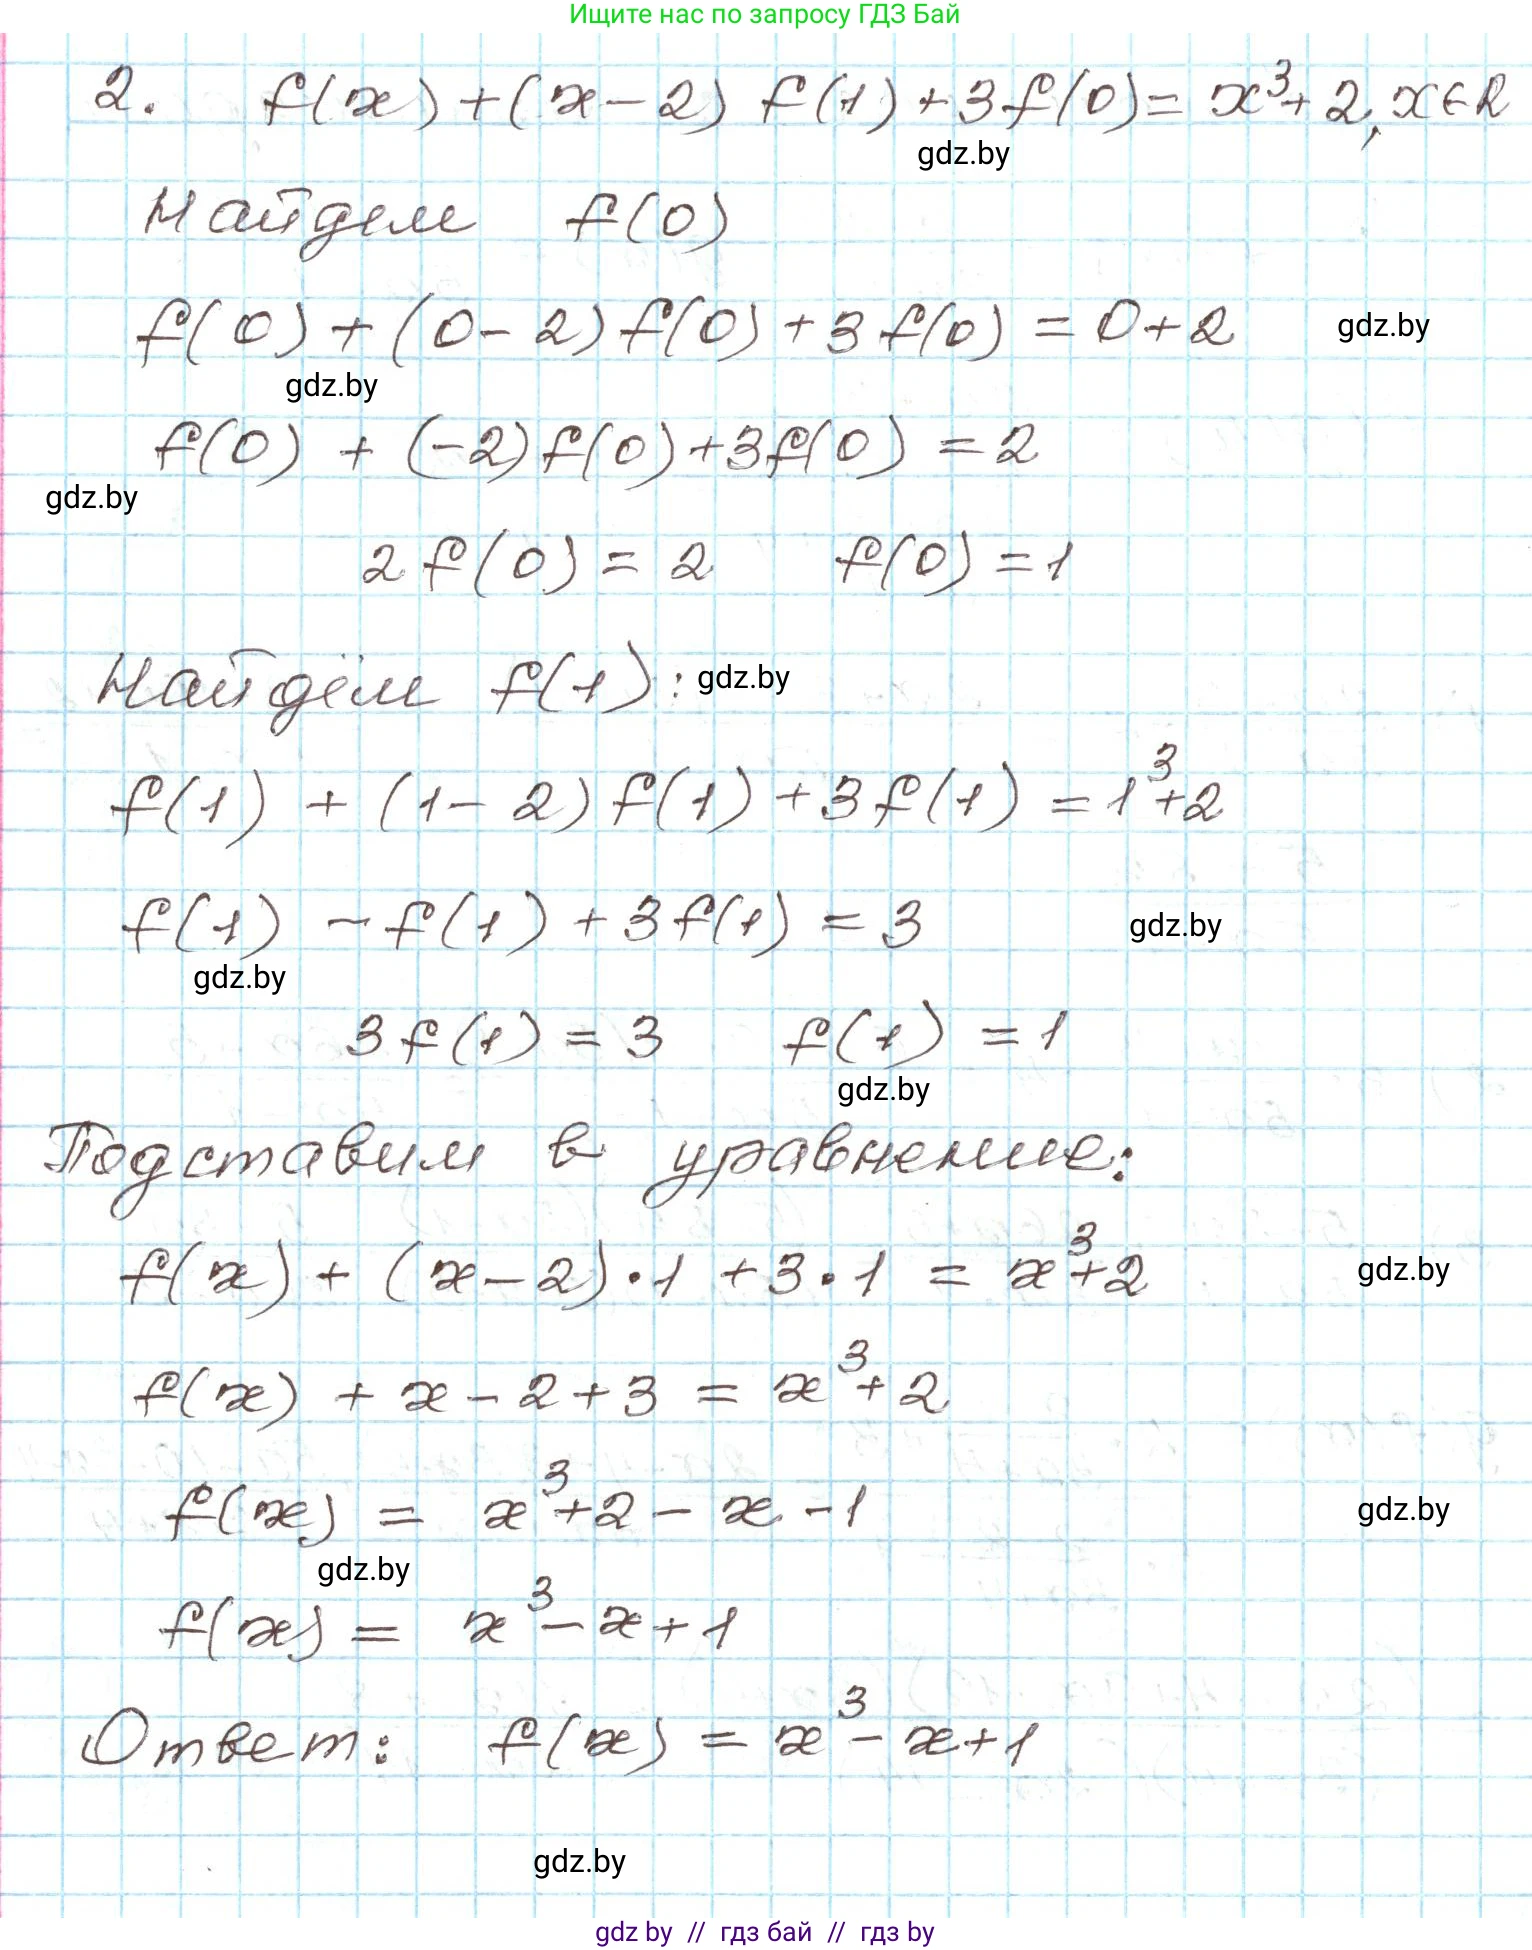 Ищите нас по запросу ГДЗ Бай
2. f(x) + (x - 2) f(1) + 3f(0) = x³ + 2, x ∈ R
gdz.by
Найдем f(0)
f(0) + (0 - 2) f(0) + 3 f(0) = 0 + 2 gdz.by
gdz.by
f(0) + (-2) f(0) + 3f(0) = 2
gdz.by
2 f(0) = 2 f(0) = 1
Найдём f(1): gdz.by
f(1) + (1 - 2) f(1) + 3 f(1) = 1³ + 2
f(1) - f(1) + 3f(1) = 3 gdz.by
gdz.by
3 f(1) = 3 f(1) = 1
gdz.by
Подставим в уравнение:
f(x) + (x - 2) · 1 + 3 · 1 = x³ + 2 gdz.by
f(x) + x - 2 + 3 = x³ + 2
f(x) = x³ + 2 - x - 1 gdz.by
gdz.by
f(x) = x³ - x + 1
Ответ: f(x) = x³ - x + 1
gdz.by
gdz by // гдз бай // гдз by